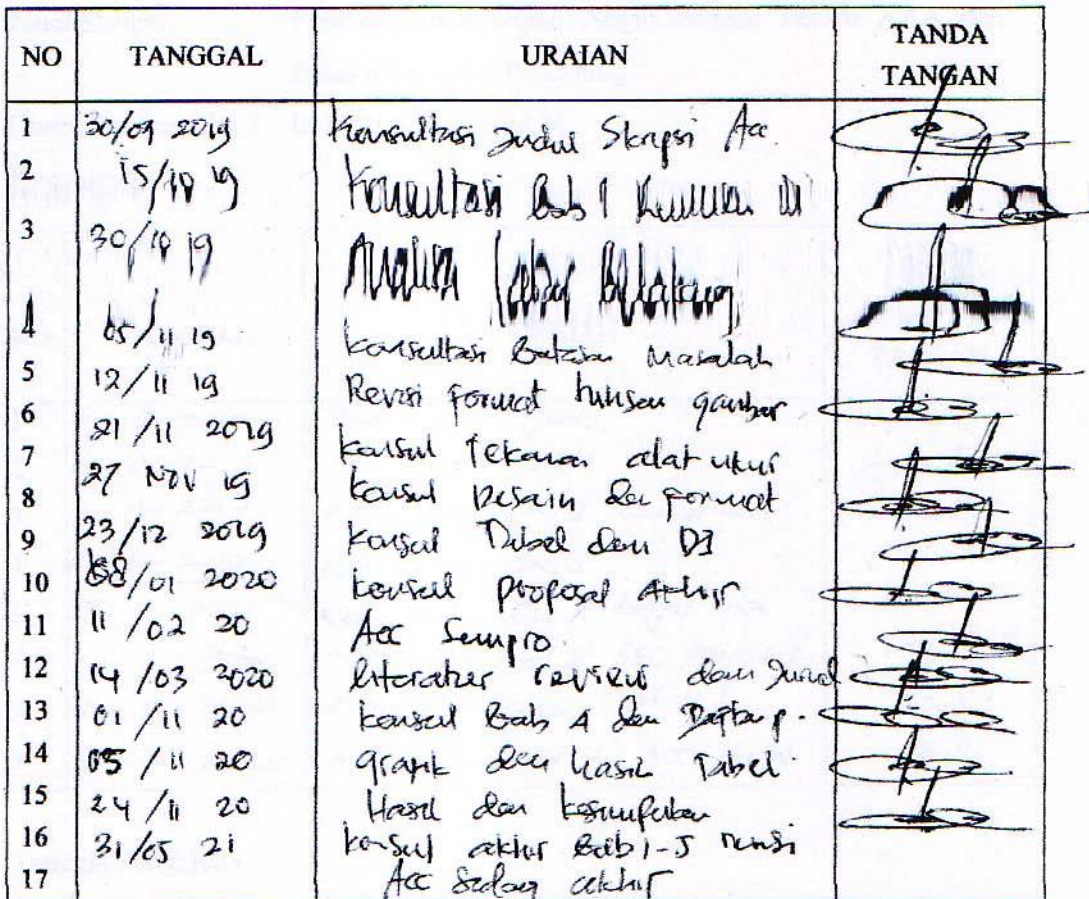 NO TANGGAL URAIAN TANDA TANGAN
1 30/09 2019 Konsultasi Judul Skripsi Acc
2 15/10 19 Konsultasi Bab 1
3 30/10 19 Latar Belakang
4 05/11 19 Konsultasi Batasan Masalah
5 12/11 19 Revisi format tulisan gambar
6 21/11 2019
7 27 Nov 19 Konsul Tekanan alat ukur
8 Konsul Desain dan format
9 23/12 2019 Konsul Tabel dan D3
10 08/01 2020 Konsul proposal Akhir
11 11/02 20 Acc Sempro
12 14/03 2020 literatur review dan Jurnal
13 01/11 20 Konsul Bab 4 dan Daftar p.
14 05/11 20 grafik dan hasil Tabel
15 24/11 20 Hasil dan kesimpulan
16 31/05 21 Konsul akhir Bab 1-5 revisi
17 Acc Sidang akhir